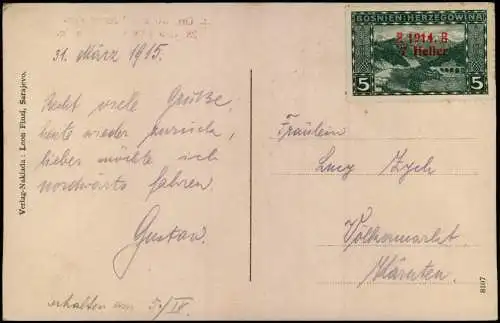 BOSNIEN-HERZEGOWINA
1914.
7 Heller
5 5
31. März 1915.
Recht viele Grüße,
heute wieder zurück,
lieber möchte ich
nordwärts fahren.
Gustav.
erhalten am 5./IV.
Verlag-Naklada: Leon Finzi, Sarajevo.
Fräulein
Lucy Zych
Völkermarkt
Kärnten.
8107